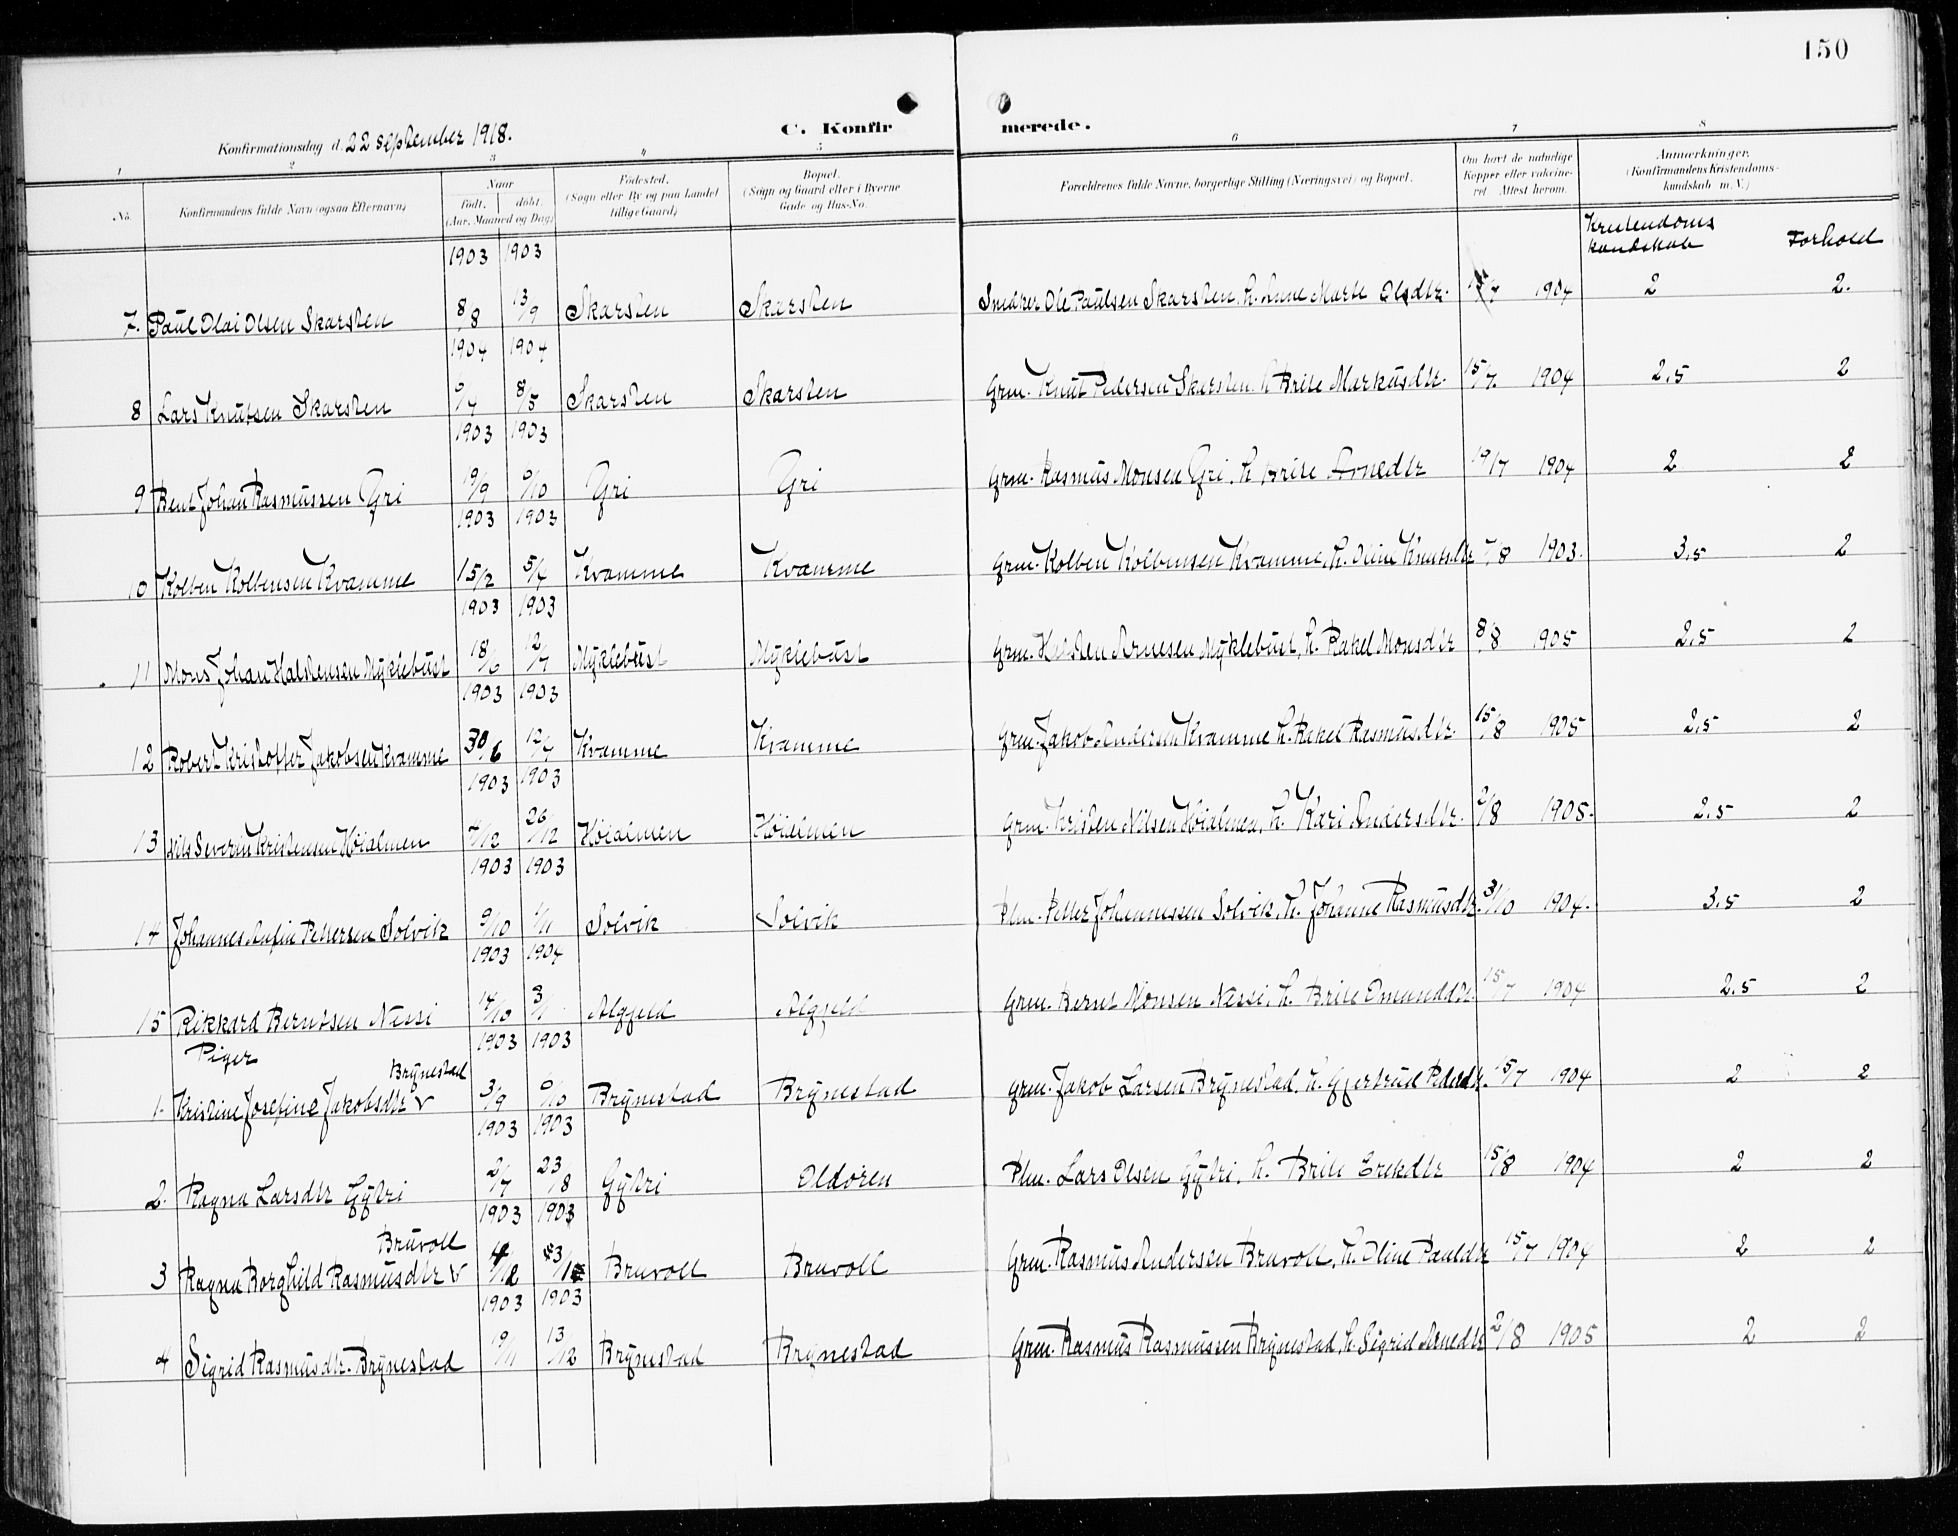 150
Konfirmationsdag d. 22 september 1918.
C. Konfirmerede.
1 2 3 4 5 6 7 8
No.
Konfirmandens fulde Navn (ogsaa Efternavn)
Naar
født. døbt.
(Aar, Maaned og Dag)
Fødested.
(Sogn eller By og paa Landet
tillige Gaard)
Bopæl.
(Sogn og Gaard eller i Byerne
Gade og Hus-No.
Forældrenes fulde Navne, borgerlige Stilling (Næringsvei) og Bopæl.
Om havt de naturlige
Kopper eller vakcine-
ret Attest herom.
Anmærkninger.
(Konfirmandens Kristendoms-
kundskab m. V.)
Kristendoms
kundskab Forhold
1903 1903
7. Paul Olai Olsen Skarsten 8/8 13/9 Skarsten Skarsten Smører Ole Paulsen Skarsten, h. Anne Marte Olsdtr. 15/7 1904 2 2.
1904 1904
8 Lars Knutsen Skarsten 9/4 8/5 Skarsten Skarsten Grm. Knut Pedersen Skarsten h Brite Markusdtr. 15/7. 1904 2,5 2
1903 1903
9 Bent Johan Rasmussen Gri 19/9 9/10 Gri Gri Grm. Rasmus Monsen Gri, h Brite Arnedtr 19/7 1904 2 2
1903 1903
10 Kolben Kolbensen Kvamme 15/2 5/4 Kvamme Kvamme Grm. Kolben Kolbensen Kvamme, h. Oline Knutsdtr 7/8 1903. 3,5 2
1903 1903
11 Mons Johan Halstensen Myklebust 18/6 12/7 Myklebust Myklebust Grm. Halsten Arnesen Myklebust, h. Rakel Monsdtr 8/8 1905 2,5 2
1903 1903
12 Robert Kristoffer Jakobsen Kvamme 30/6 12/7 Kvamme Kvamme Grm. Jakob Andersen Kvamme h. Rakel Rasmusdtr. 15/8 1905 2,5 2
1903 1903
13 Nils Severin Kristensen Høialmen 4/12 26/12 Høialmen Høialmen Grm. Kristen Nilsen Høialmen, h. Kari Andersdtr. 2/8 1905. 2,5 2
1903 1903
14 Johannes Anfin Pettersen Solvik 9/10 1/11 Solvik Solvik Plm. Petter Johannessen Solvik, h. Johanne Rasmusdtr. 31/10 1904. 3,5 2
1903 1904
15 Rikkard Berntsen Nessi 14/10 3/1 Algjeld Algjeld Grm. Bernt Monsen Nessi, h. Brite Emunddtr. 15/7 1904 2,5 2
Piger 1903 1903
1. Kristine Josefine Jakobsdtr v Brynestad 3/9 6/10 Brynestad Brynestad Grm. Jakob Larsen Brynestad, h. Gjertrud Pedersdtr. 15/7 1904 2 2
1903 1903
2. Ragna Larsdtr Gytri 2/7 23/8 Gytri Oldøren Plm. Lars Olsen Gytri, h. Brite Erekdtr 15/8 1904 2 2
1903 1903
3 Ragna Borghild Rasmusdtr v Bruvoll 4/12 Bruvoll Bruvoll Grm. Rasmus Andersen Bruvoll, h. Oline Pauldtr 15/7 1904 2 2
1903 1903
4 Sigrid Rasmusdtr. Brynestad 19/11 13/12 Brynestad Brynestad Grm. Rasmus Rasmussen Brynestad, h. Sigrid Arnedtr 2/8 1905 2 2